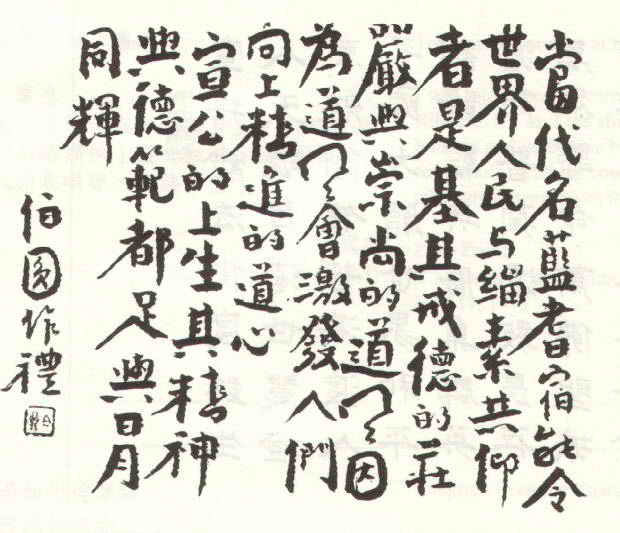 當代名藍耆宿能令
世界人民与緇素共仰
者是基其戒德的莊
嚴與崇尚的道风因
為道风會激發人們
向上精進的道心
宣公的上生其精神
與德範都足與日月
同輝
伯圓作禮